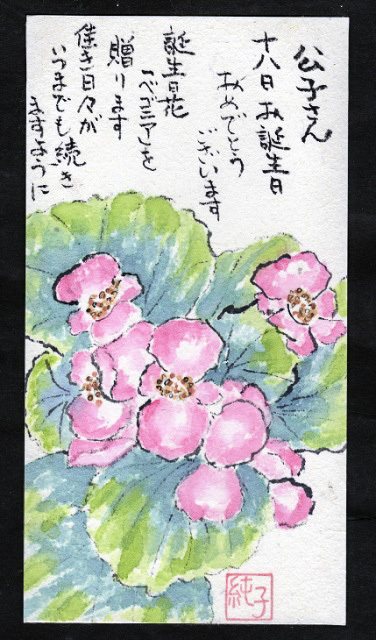 公子さん
十八日お誕生日
おめでとう
ございます
誕生日花
「ベゴニア」を
贈ります
佳き日々が
いつまでも続き
ますように
純子